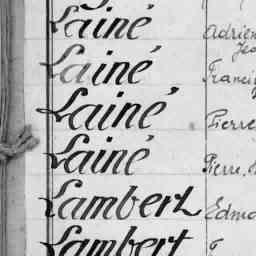 Lainé Adrien
Lainé
Lainé Pierre
Lainé Pierre
Lambert Edmo
Lambert